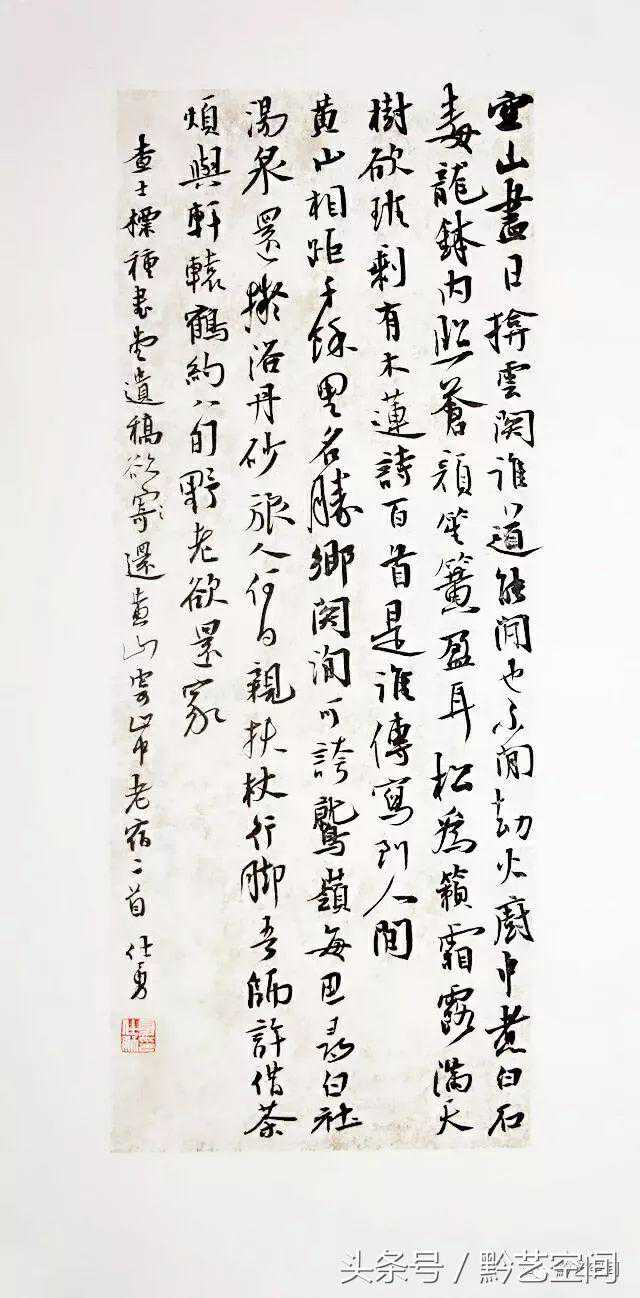 空山盡日揜雲関誰道能閒也不閒劫火廚中煮白石
毒龍鉢内照蒼顏笙簧盈耳松為籟霜露滿天
樹欲斑剩有木蓮詩百首是誰傳寫到人間
黄山相距千餘里名勝鄉関洵可誇鷲嶺每思尋白社
湯泉還擬浴丹砂旅人何日親扶杖行脚吾師許借茶
煩與軒轅鶴約八旬野老欲還家
查士標種書堂遺稿欲寄還黄山寄山中老宿二首 仕勇
头条号 / 黔艺空间